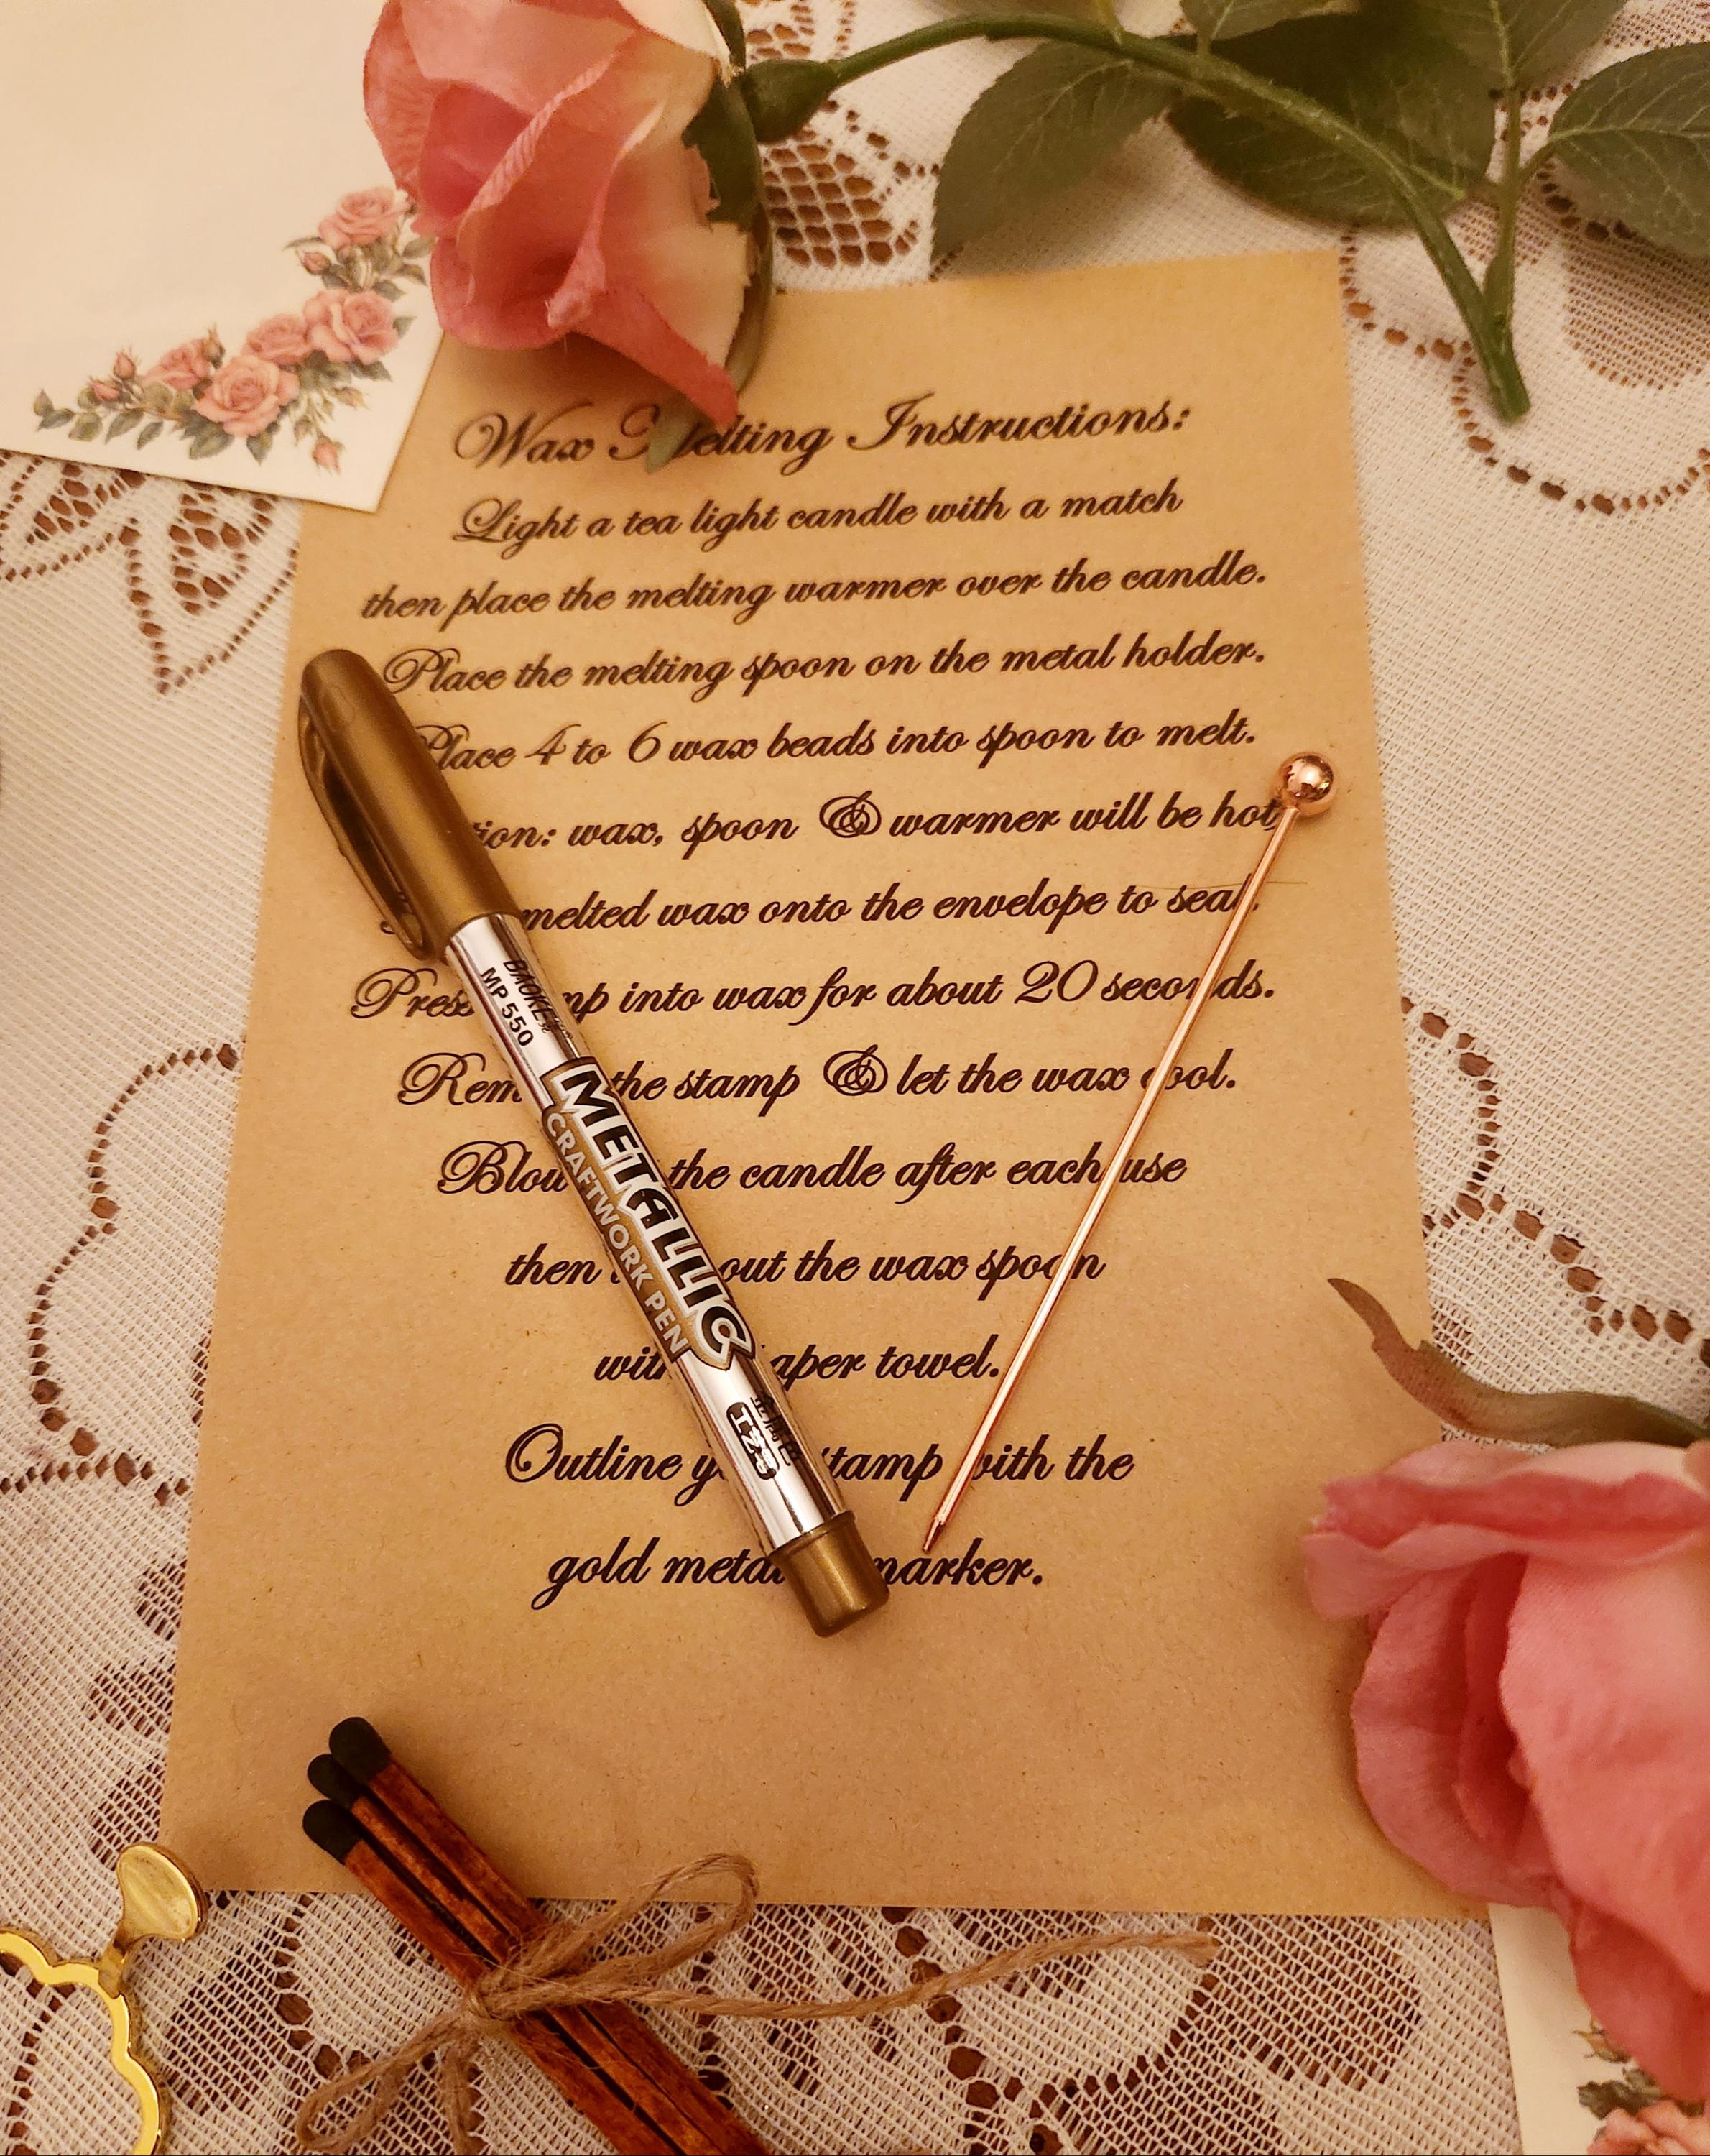 Wax Melting Instructions:
Light a tea light candle with a match
then place the melting warmer over the candle.
Place the melting spoon on the metal holder.
Place 4 to 6 wax beads into spoon to melt.
wax, spoon & warmer will be hot
melted wax onto the envelope to seal.
Press into wax for about 20 seconds.
the stamp & let the wax cool.
the candle after each use
then out the wax spoon
with paper towel.
Outline stamp with the
gold metallic marker.
MP 550
METALLIC
CRAFTWORK PEN